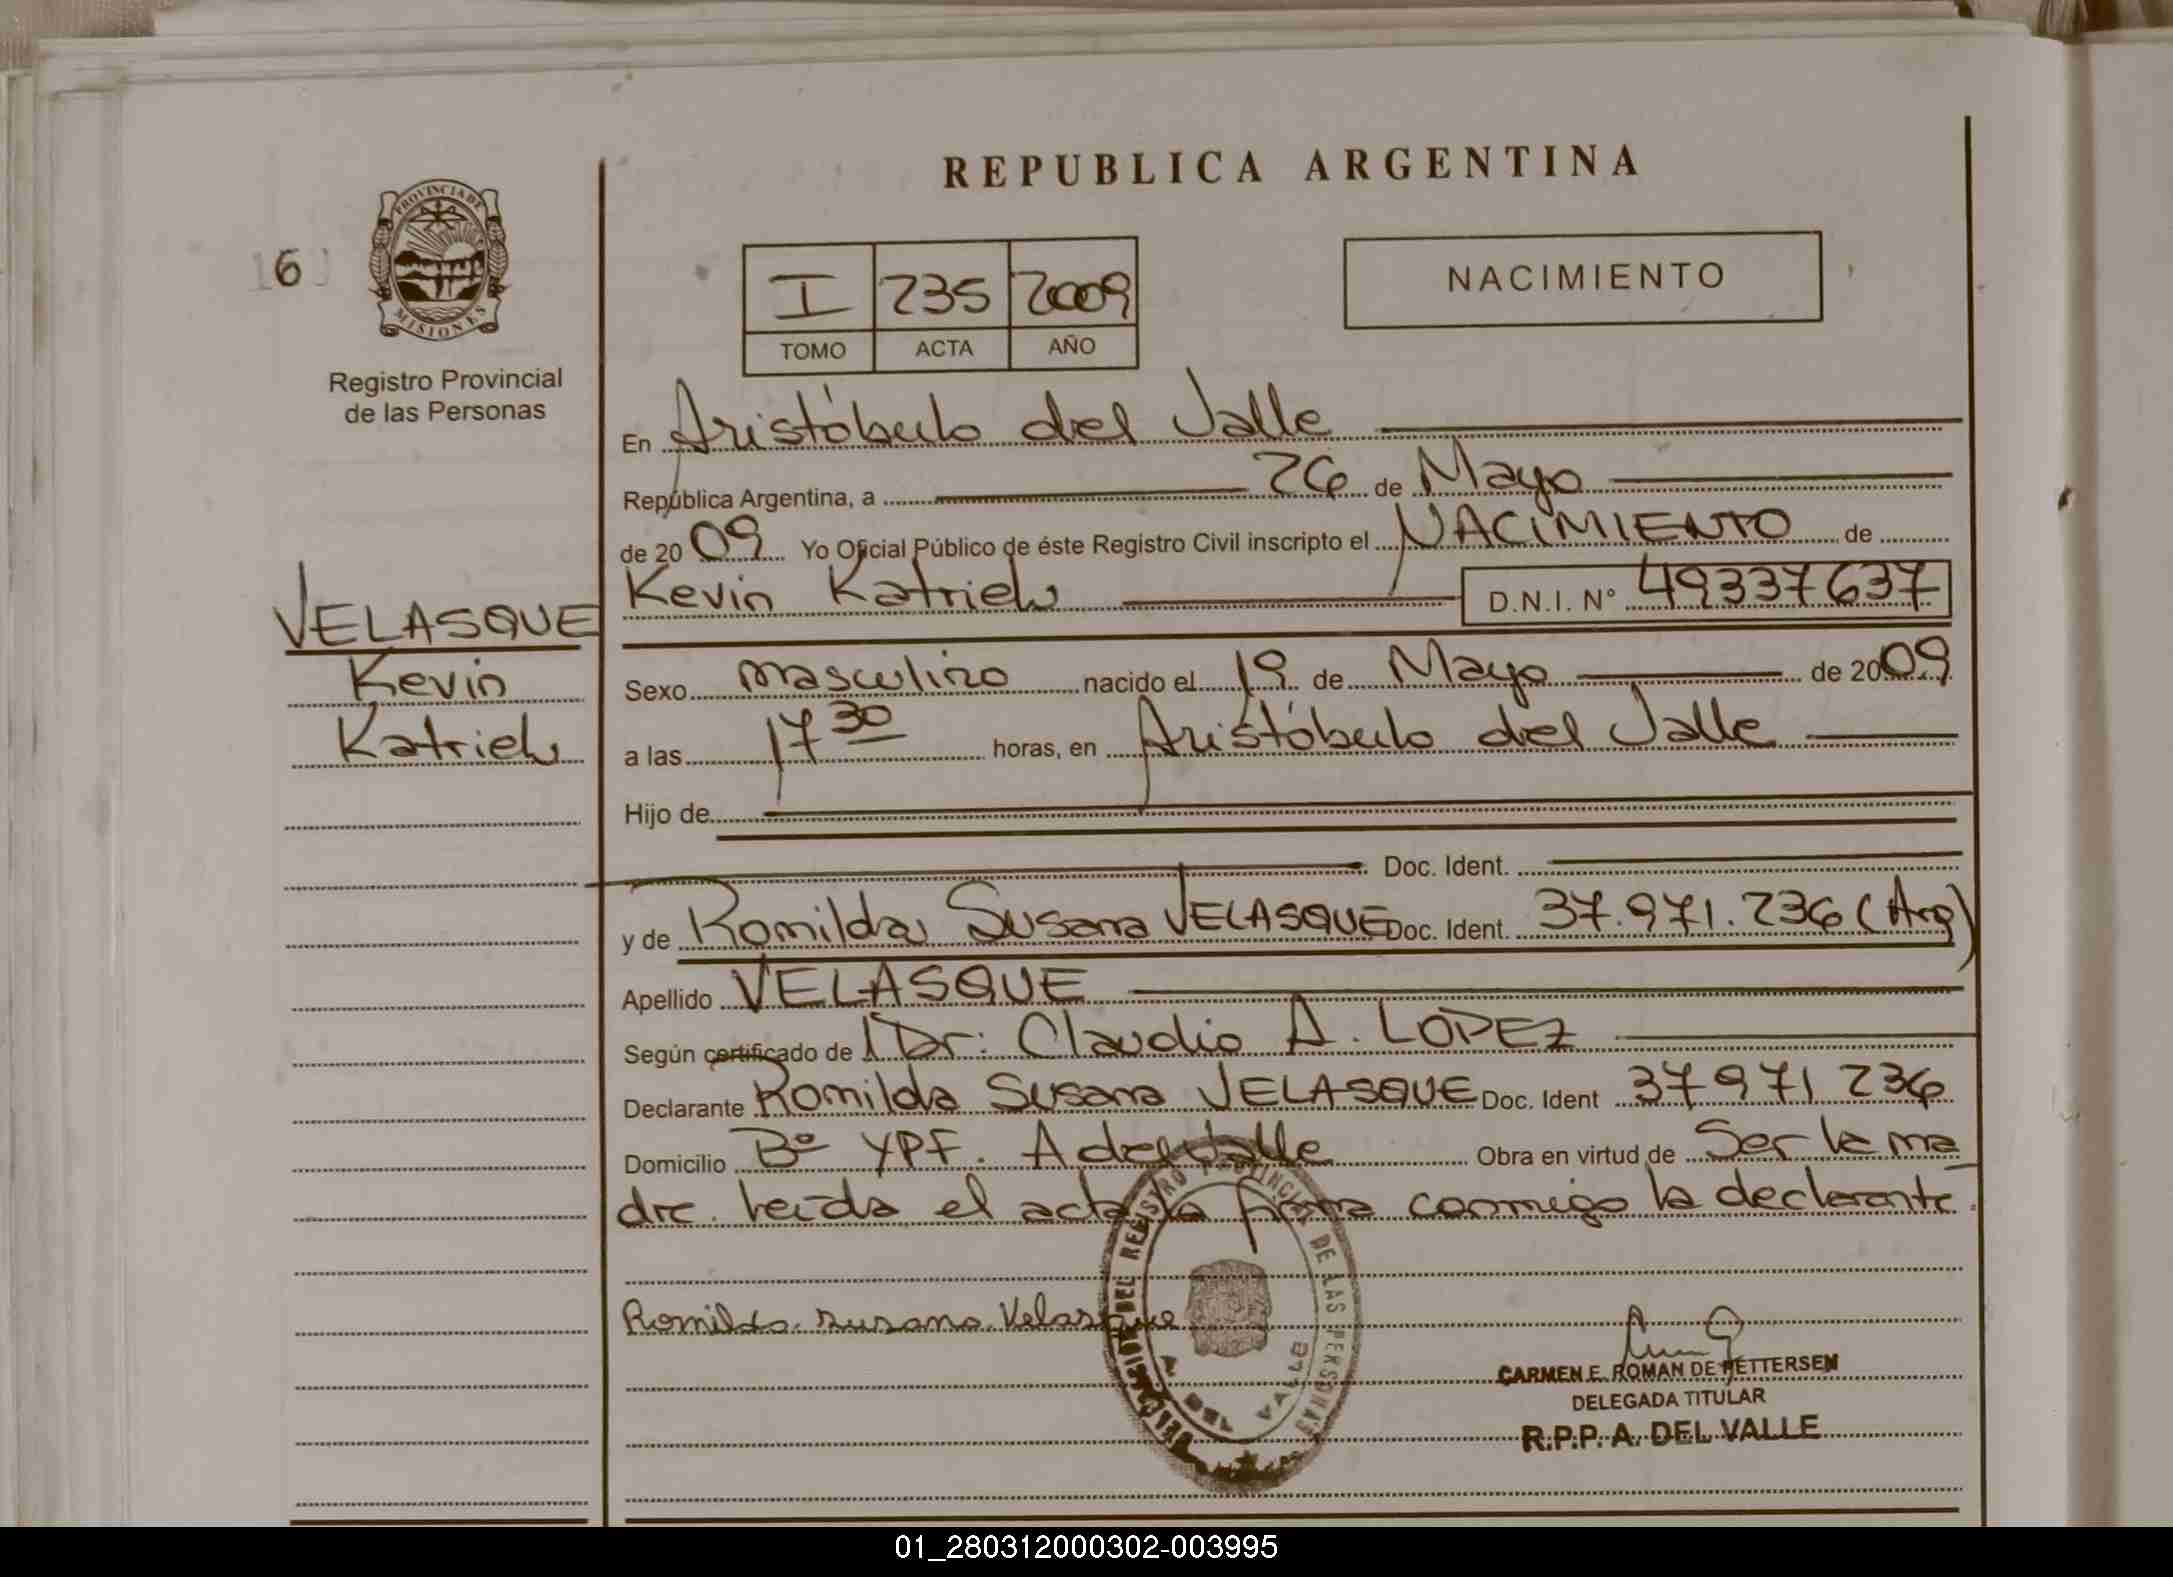 REPUBLICA ARGENTINA
6
PROVINCIA DE
MISIONES
Registro Provincial
de las Personas
I 235 2009
TOMO ACTA AÑO
NACIMIENTO
En Aristóbulo del Valle
República Argentina, a 26 de Mayo
de 2009 Yo Oficial Público de éste Registro Civil inscripto el NACIMIENTO de
Kevin Katriel D.N.I. N° 49337637
VELASQUE
Kevin
Katriel
Sexo masculino nacido el 19 de Mayo de 2009
a las 17 30 horas, en Aristóbulo del Valle
Hijo de
Doc. Ident.
y de Romilda Susana VELASQUE Doc. Ident. 37.971.236 (Arg)
Apellido VELASQUE
Según certificado de Dr: Claudio A. LOPEZ
Declarante Romilda Susana VELASQUE Doc. Ident 37971236
Domicilio Bº YPF. A del Valle Obra en virtud de Ser la ma
dre. Leída el acta la firma conmigo la declarante.
Romilda Susana Velasque
DELEGACION DEL REGISTRO PROVINCIAL DE LAS PERSONAS
VALLE
CARMEN E. ROMAN DE PETTERSEN
DELEGADA TITULAR
R.P.P. A. DEL VALLE
01_280312000302-003995